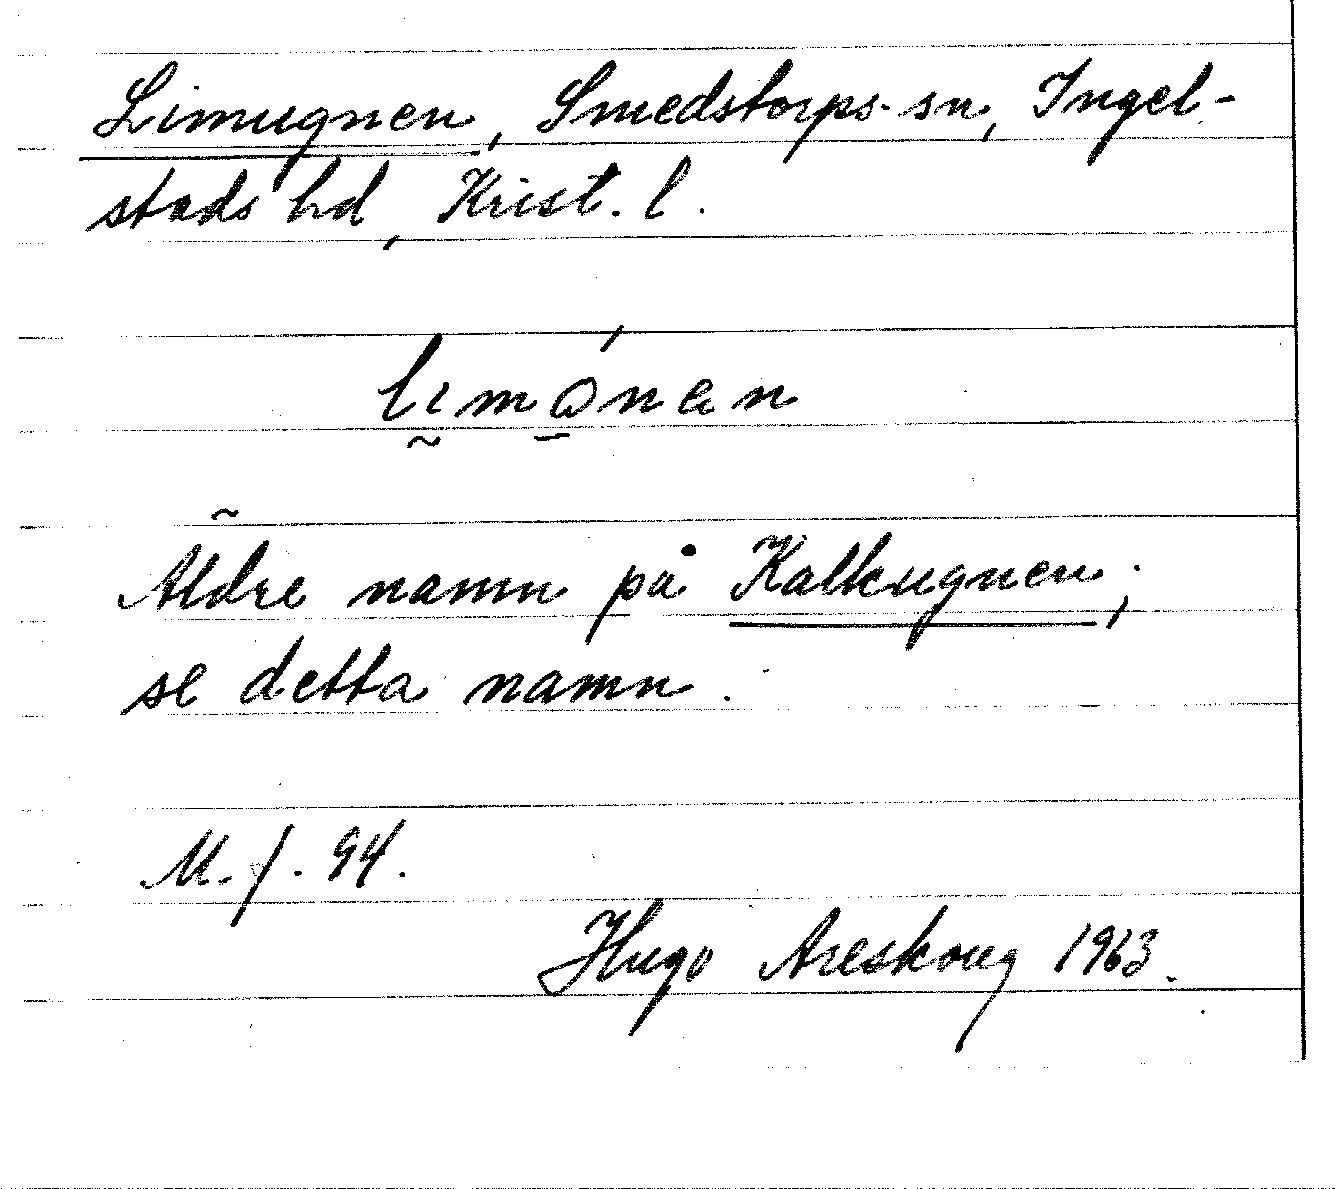 Limugnen, Smedstorps sn, Ingel-
stads hd, Krist. l.
Äldre namn på Kalkugnen;
se detta namn.
M. f. 94.
Hugo Areskoug 1963.